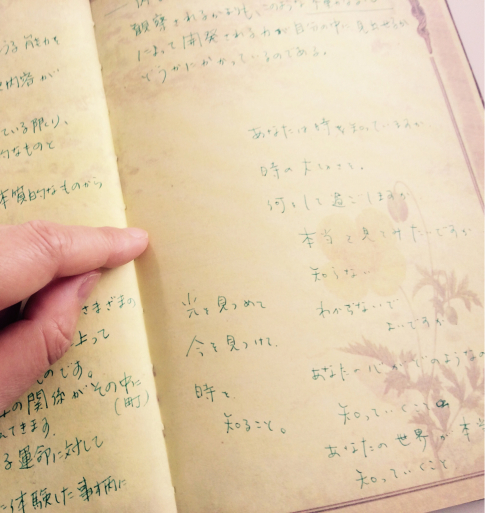 うる能力を
内容が
ている限り、
的なものと
本質的なものから
さまざまの
上って
ものです。
の関係がその中に
(町)
えてきます。
る運命に対して
に体験した事柄に
観察されるかよりも、このような
によって開発される力が自分の中に見出せるか
どうかにかかっているのである。
あなたは時をまっているか
時の大きさを。
何をして過ごしますか
本当を見てみたいですか
知らない
わからないで
よいですか
光を見つめて
今を見つけて、
時を
知ること。
あなたの心がどのような
知っていくこと
あなたの世界が本当
知っていくこと